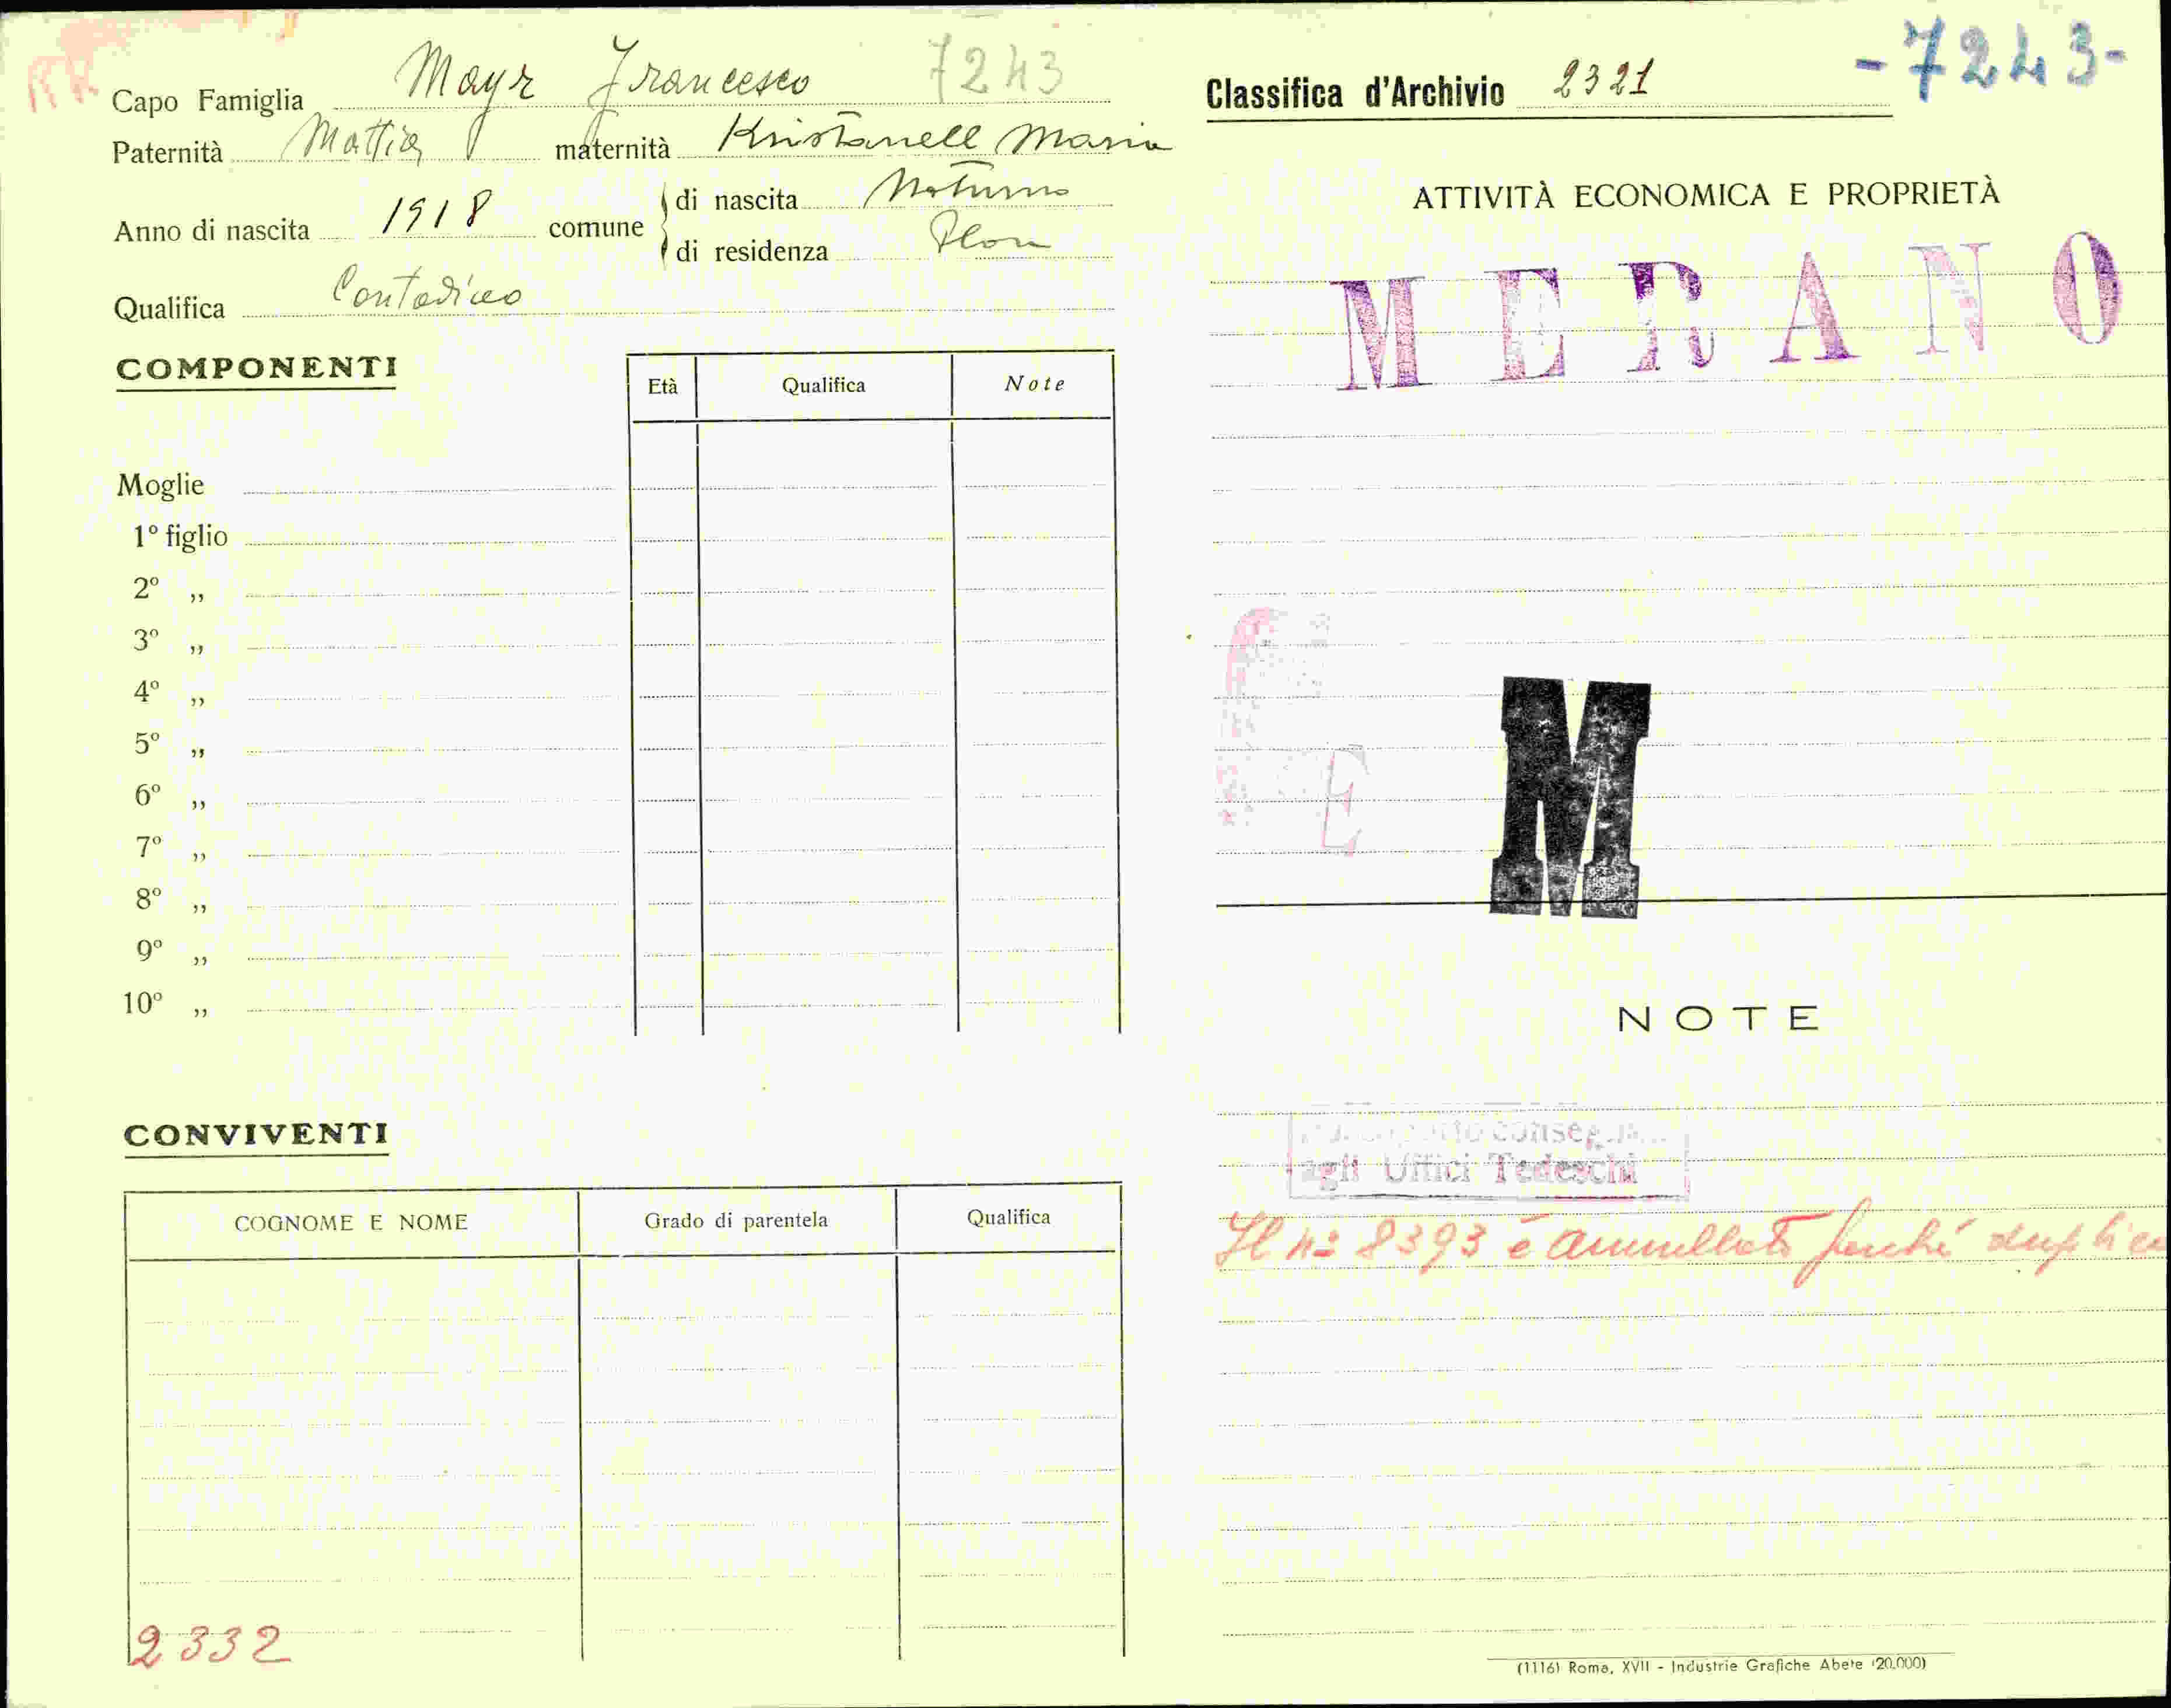 Capo Famiglia Mayr Francesco 7243
Paternità Mattia maternità Kristanell Maria
Anno di nascita 1918 comune di nascita Naturno
di residenza Plon
Qualifica Contadino
COMPONENTI
Età Qualifica Note
Moglie
1º figlio
2º „
3º „
4º „
5º „
6º „
7º „
8º „
9º „
10º „
CONVIVENTI
COGNOME E NOME Grado di parentela Qualifica
2332
-7243-
Classifica d'Archivio 2321
ATTIVITÀ ECONOMICA E PROPRIETÀ
MERANO
E
M
NOTE
agli Uffici Tedeschi
Il nº 8393 è annullato perché duplica
(1116) Roma, XVII - Industrie Grafiche Abete (20.000)